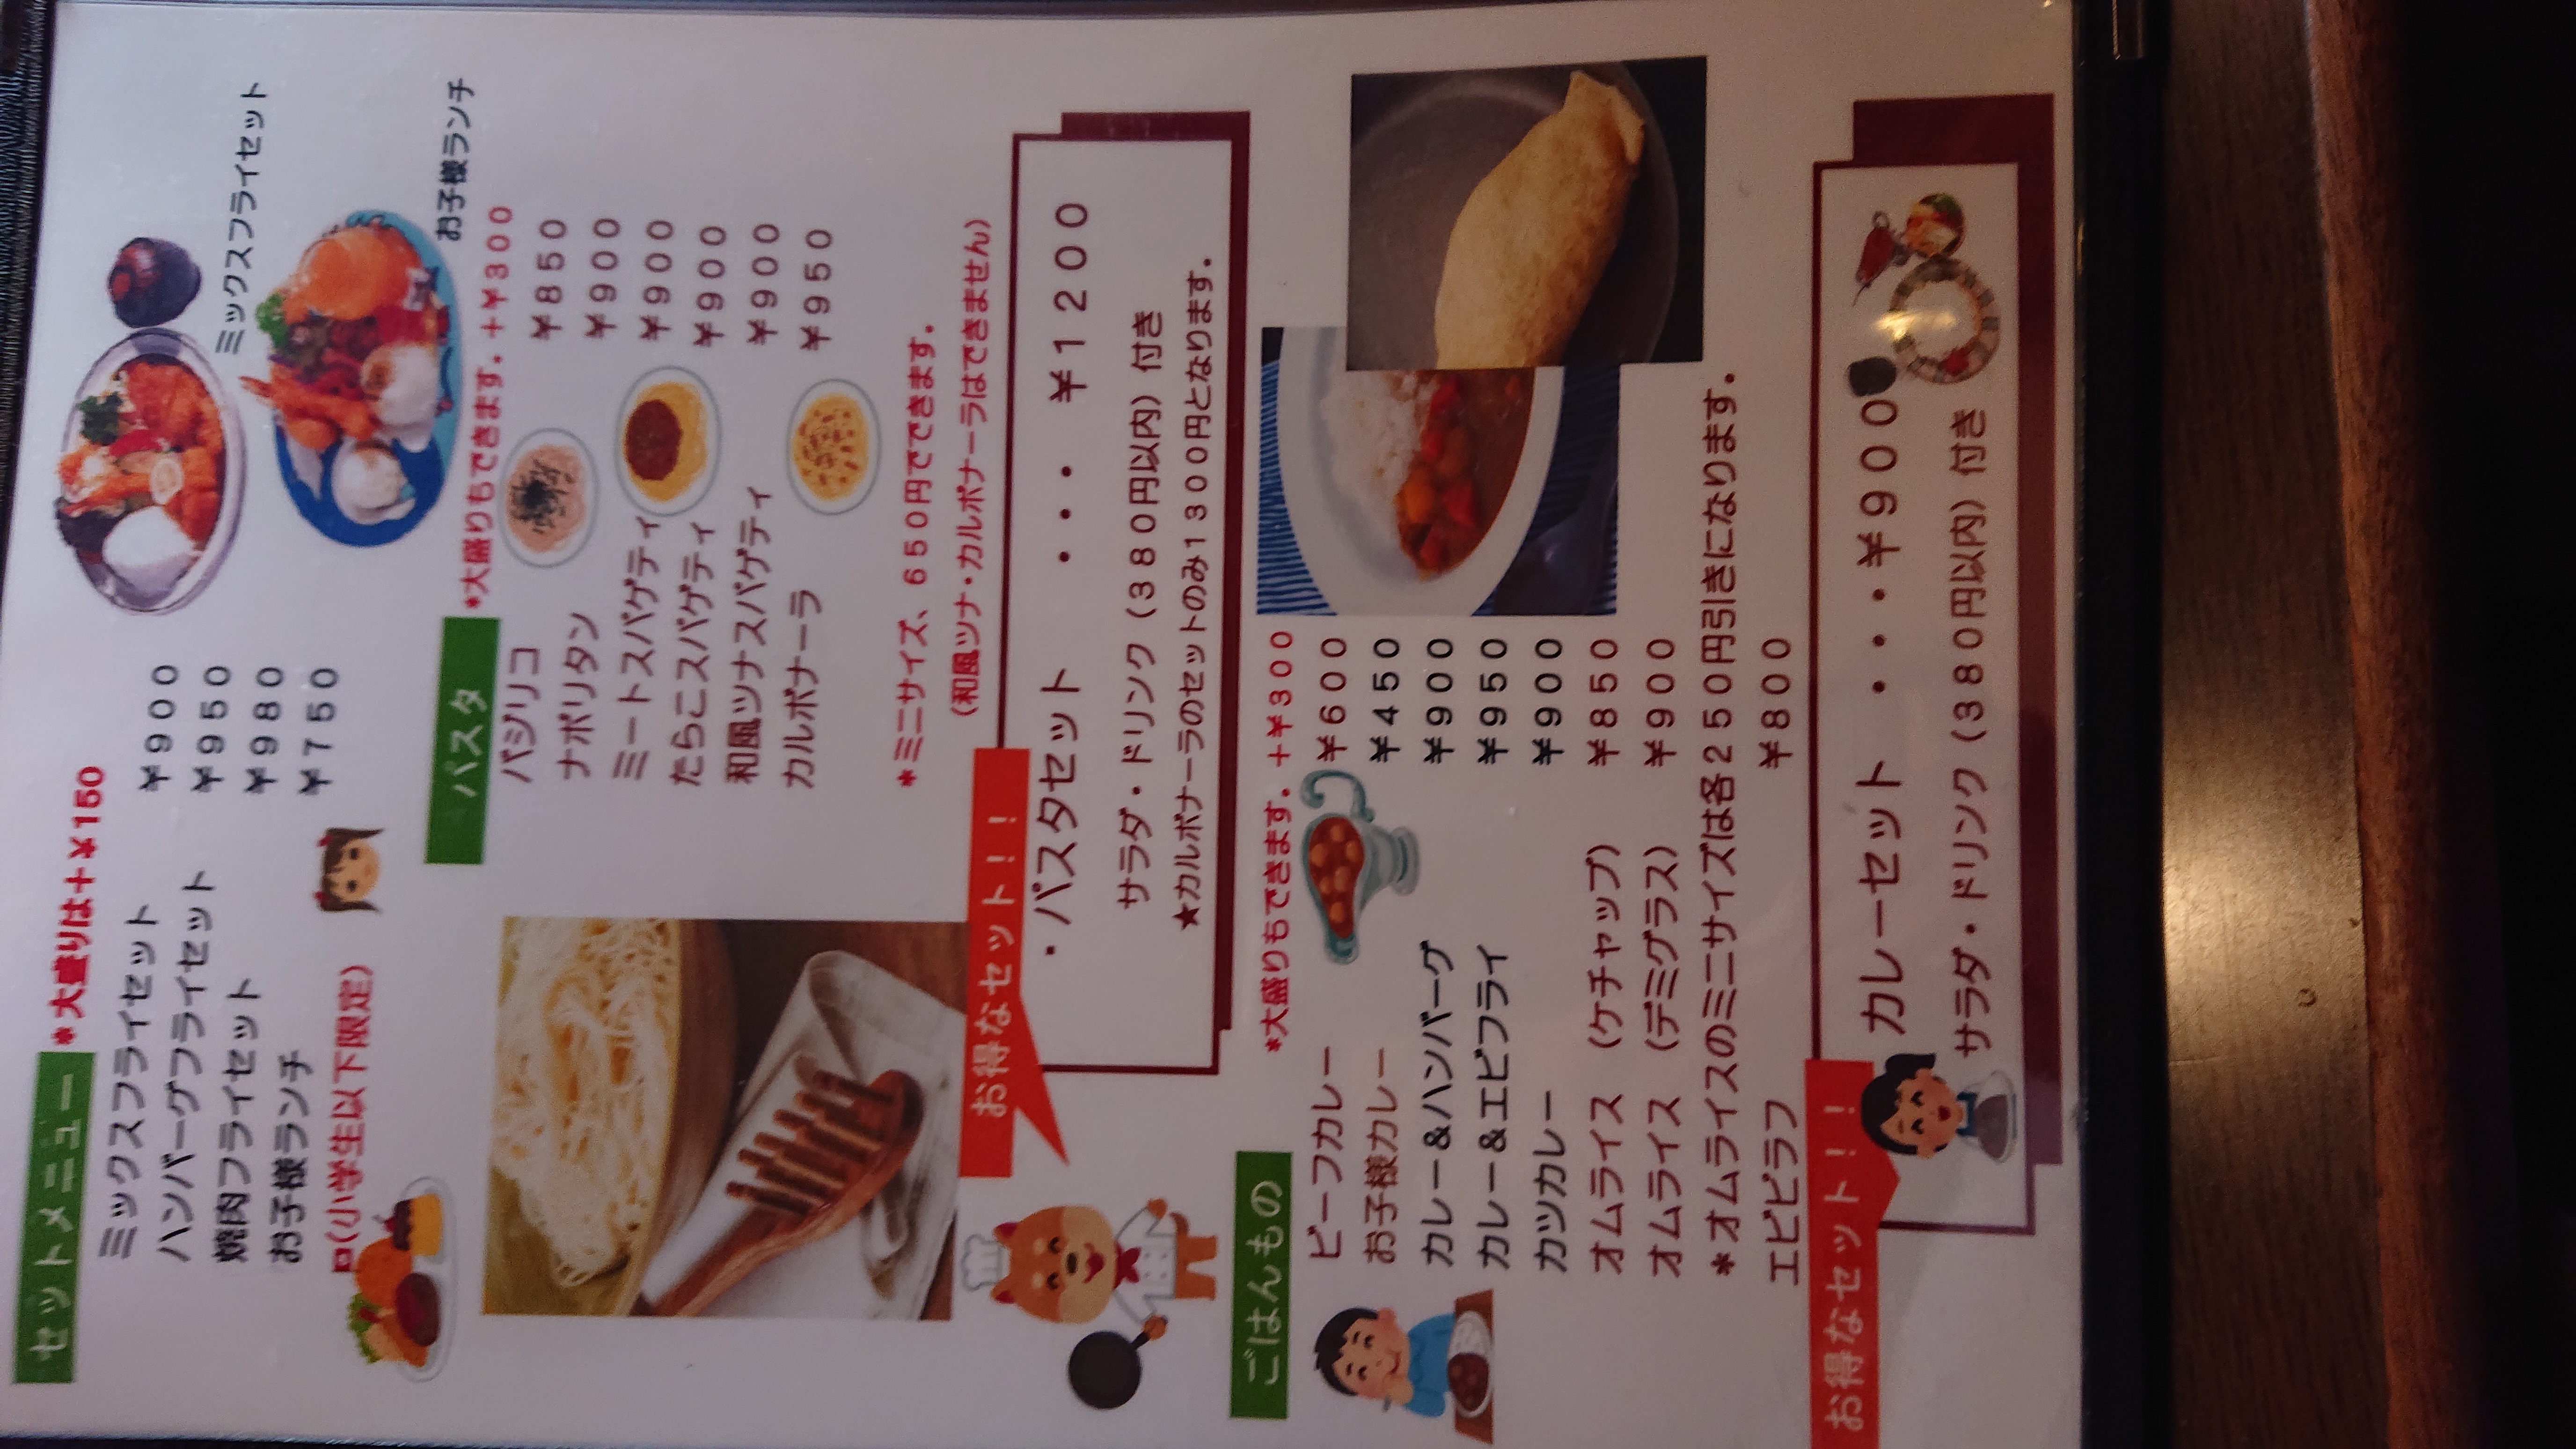 セットメニュー *大盛りは＋￥150
ミックスフライセット ￥９００
ハンバーグフライセット ￥９５０
焼肉フライセット ￥９８０
お子様ランチ ￥７５０
(小学生以下限定)
ミックスフライセット
お子様ランチ
パスタ *大盛りもできます．＋￥３００
バジリコ ￥８５０
ナポリタン ￥９００
ミートスパゲティ ￥９００
たらこスパゲティ ￥９００
和風ツナスパゲティ ￥９００
カルボナーラ ￥９５０
*ミニサイズ、６５０円でできます．
(和風ツナ・カルボナーラはできません)
お得なセット！！
・パスタセット ・・・ ￥１２００
サラダ・ドリンク（３８０円以内）付き
★カルボナーラのセットのみ１３００円となります．
ごはんもの *大盛りもできます．＋￥３００
ビーフカレー ￥６００
お子様カレー ￥４５０
カレー＆ハンバーグ ￥９００
カレー＆エビフライ ￥９５０
カツカレー ￥９００
オムライス （ケチャップ） ￥８５０
オムライス （デミグラス） ￥９００
*オムライスのミニサイズは各２５０円引きになります．
エビピラフ ￥８００
お得なセット！！
カレーセット ・・・￥９００
サラダ・ドリンク（３８０円以内）付き